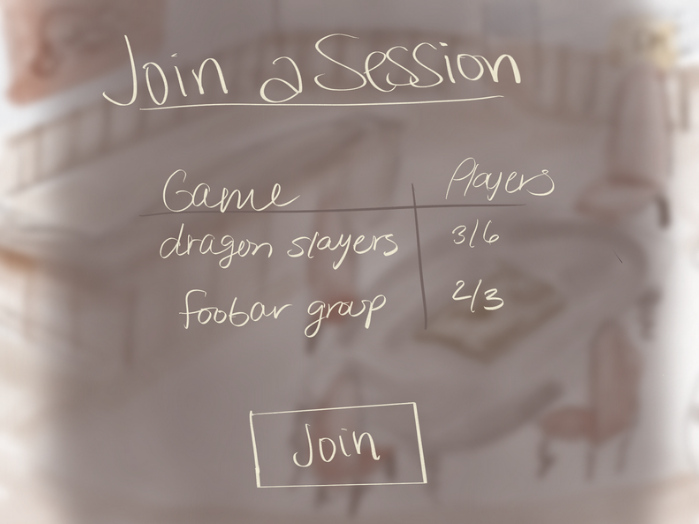 Join a Session
Game Players
dragon slayers 3/6
foobar group 2/3
Join